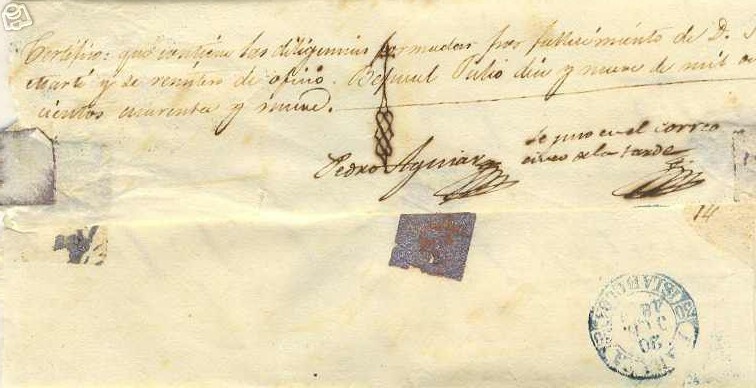 Certifico: que contiene las diligencias formadas por fallecimiento de D. J
Marti y se remiten de oficio. Bejucal Julio diez y nueve de mil o
cientos cuarenta y nueve.
Pedro Aguiar
Se puso en el correo
cinco de la tarde
14